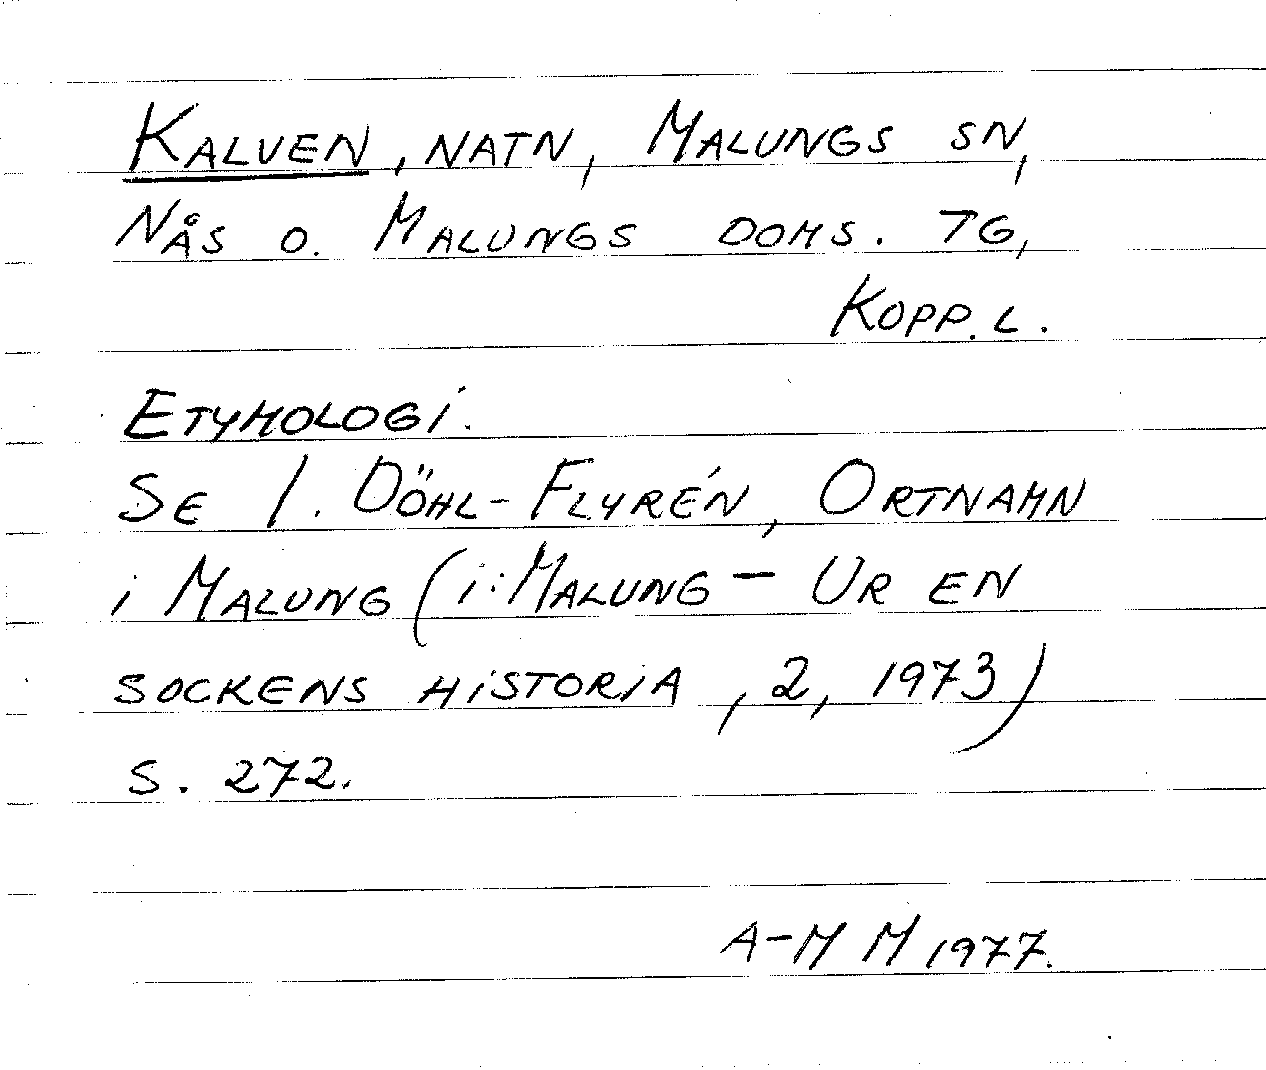 KALVEN, NATN, MALUNGS SN,
NÅS O. MALUNGS DOMS. TG,
KOPP. L.
ETYMOLOGI.
SE I. DÖHL-FLYRÉN, ORTNAMN
i MALUNG (i: MALUNG – UR EN
SOCKENS HISTORIA, 2, 1973)
S. 272.
A-M M 1977.